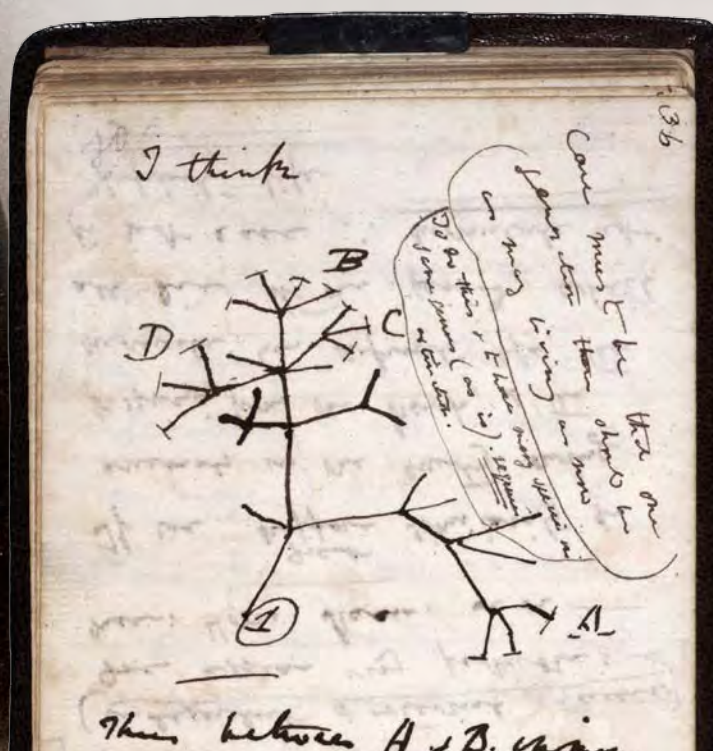 I think
B
D
C
1
A
Case must be that one
generation then should be
as many living as now
To do this & to have many species in
same genus (as is). requires
extinction.
36
Thus between A & B.